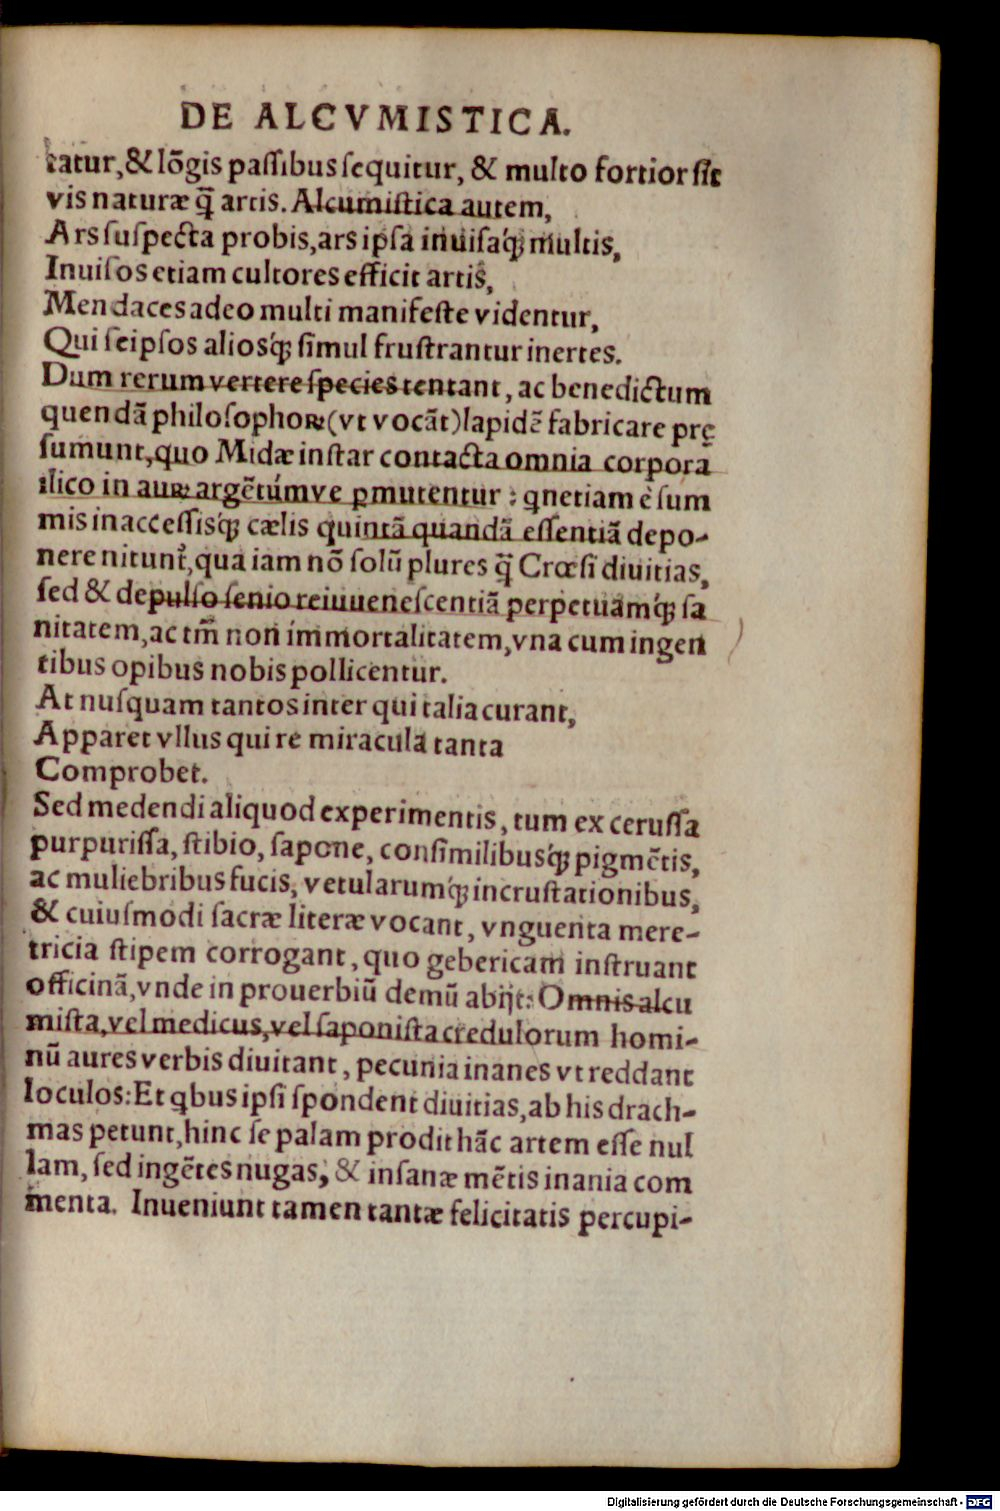 DE ALCVMISTICA.
tatur, & lõgis paſſibus ſequitur, & multo fortior ſit
vis naturæ q̃ artis. Alcumiſtica autem,
Ars ſuſpecta probis, ars ipſa inuiſaq́; multis,
Inuiſos etiam cultores efficit artis,
Mendaces adeo multi manifeſte videntur,
Qui ſeipſos alioſq́; ſimul fruſtrantur inertes.
Dum rerum vertere ſpecies tentant, ac benedictum
quendã philoſophoꝝ (vt vocãt) lapidẽ fabricare prę
ſumunt, quo Midæ inſtar contacta omnia corpora
ilico in auꝝ argẽtúmve ꝑmutentur: qnetiam è ſum
mis inacceſſiſq́; cælis quintã quandã eſſentiã depo-
nere nitunt᷑, qua iam nõ ſolũ plures q̃ Crœſi diuitias,
ſed & depulſo ſenio reiuueneſcentiã perpetuamq́; ſa
nitatem, ac tm̃ non immortalitatem, vna cum ingen
tibus opibus nobis pollicentur.
At nuſquam tantos inter qui talia curant,
Apparet vllus qui re miracula tanta
Comprobet.
Sed medendi aliquod experimentis, tum ex ceruſſa
purpuriſſa, ſtibio, ſapone, conſimilibuſq́; pigmẽtis,
ac muliebribus fucis, vetularumq́; incruſtationibus,
& cuiuſmodi ſacræ literæ vocant, vnguenta mere-
tricia ſtipem corrogant, quo gebericam inſtruant
officinã, vnde in prouerbiũ demũ abijt: Omnis alcu
miſta, vel medicus, vel ſaponiſta credulorum homi-
nũ aures verbis diuitant, pecunia inanes vt reddant
loculos: Et qbus ipſi ſpondent diuitias, ab his drach-
mas petunt, hinc ſe palam prodit hãc artem eſſe nul
lam, ſed ingẽtes nugas, & inſanæ mẽtis inania com
menta. Inueniunt tamen tantæ felicitatis percupi-
Digitalisierung gefördert durch die Deutsche Forschungsgemeinschaft - DFG